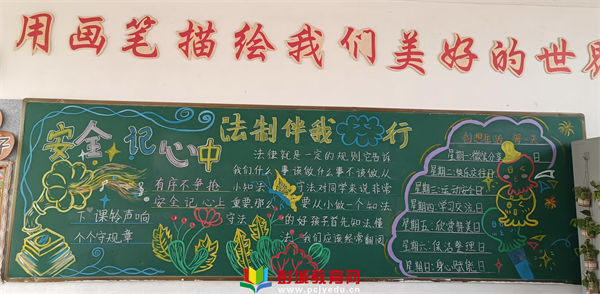 用画笔描绘我们美好的世界
安全记心中
有序不争抢
安全记心上
下课铃声响
个个守规章
法制伴我行
法律就是一定的规则它告诉
我们什么事该做什么事不该做,从
小知法 守法对同学来说非常
重要,那么 要从小做一个知法
守法 的好孩子首先知法,懂
法,我们应该经常翻阅
星期一:微笑分享日
星期二:快乐支持日
星期三:运动安全日
星期四:学习交流日
星期五:欣赏赞美日
星期六:保洁整理日
星期日:身心赋能日
彭城教育网
www.pcjyedu.cn